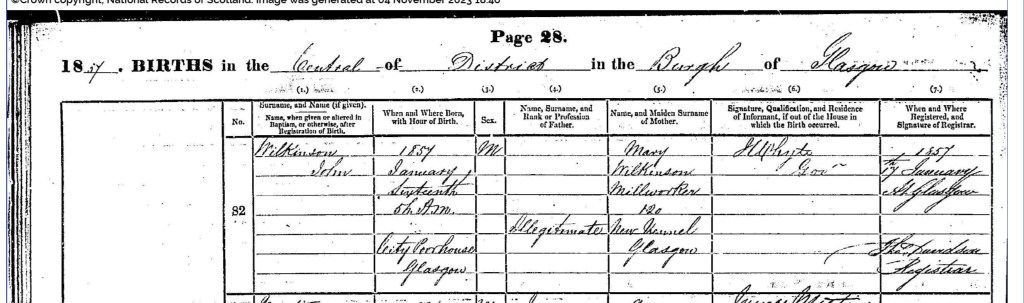 ©Crown copyright, National Records of Scotland. Image was generated at 04 November 2023 16:46
Page 28.
1857. BIRTHS in the Central of District in the Burgh of Glasgow
(1.) (2.) (3.) (4.) (5.) (6.) (7.)
No.
Surname, and Name (if given).
Name, when given or altered in
Baptism, or otherwise, after
Registration of Birth.
When and Where Born,
with Hour of Birth.
Sex.
Name, Surname, and
Rank or Profession
of Father.
Name, and Maiden Surname
of Mother.
Signature, Qualification, and Residence
of Informant, if out of the House in
which the Birth occurred.
When and Where
Registered, and
Signature of Registrar.
82
Wilkinson
John
1857
January,
Sixteenth
5h. A.M.
City Poorhouse
Glasgow
M
Illegitimate
Mary
Wilkinson
Millworker
120
New Vennel
Glasgow
H Whyte
Govr
1857
January
At Glasgow
Thos. Davidson
Registrar